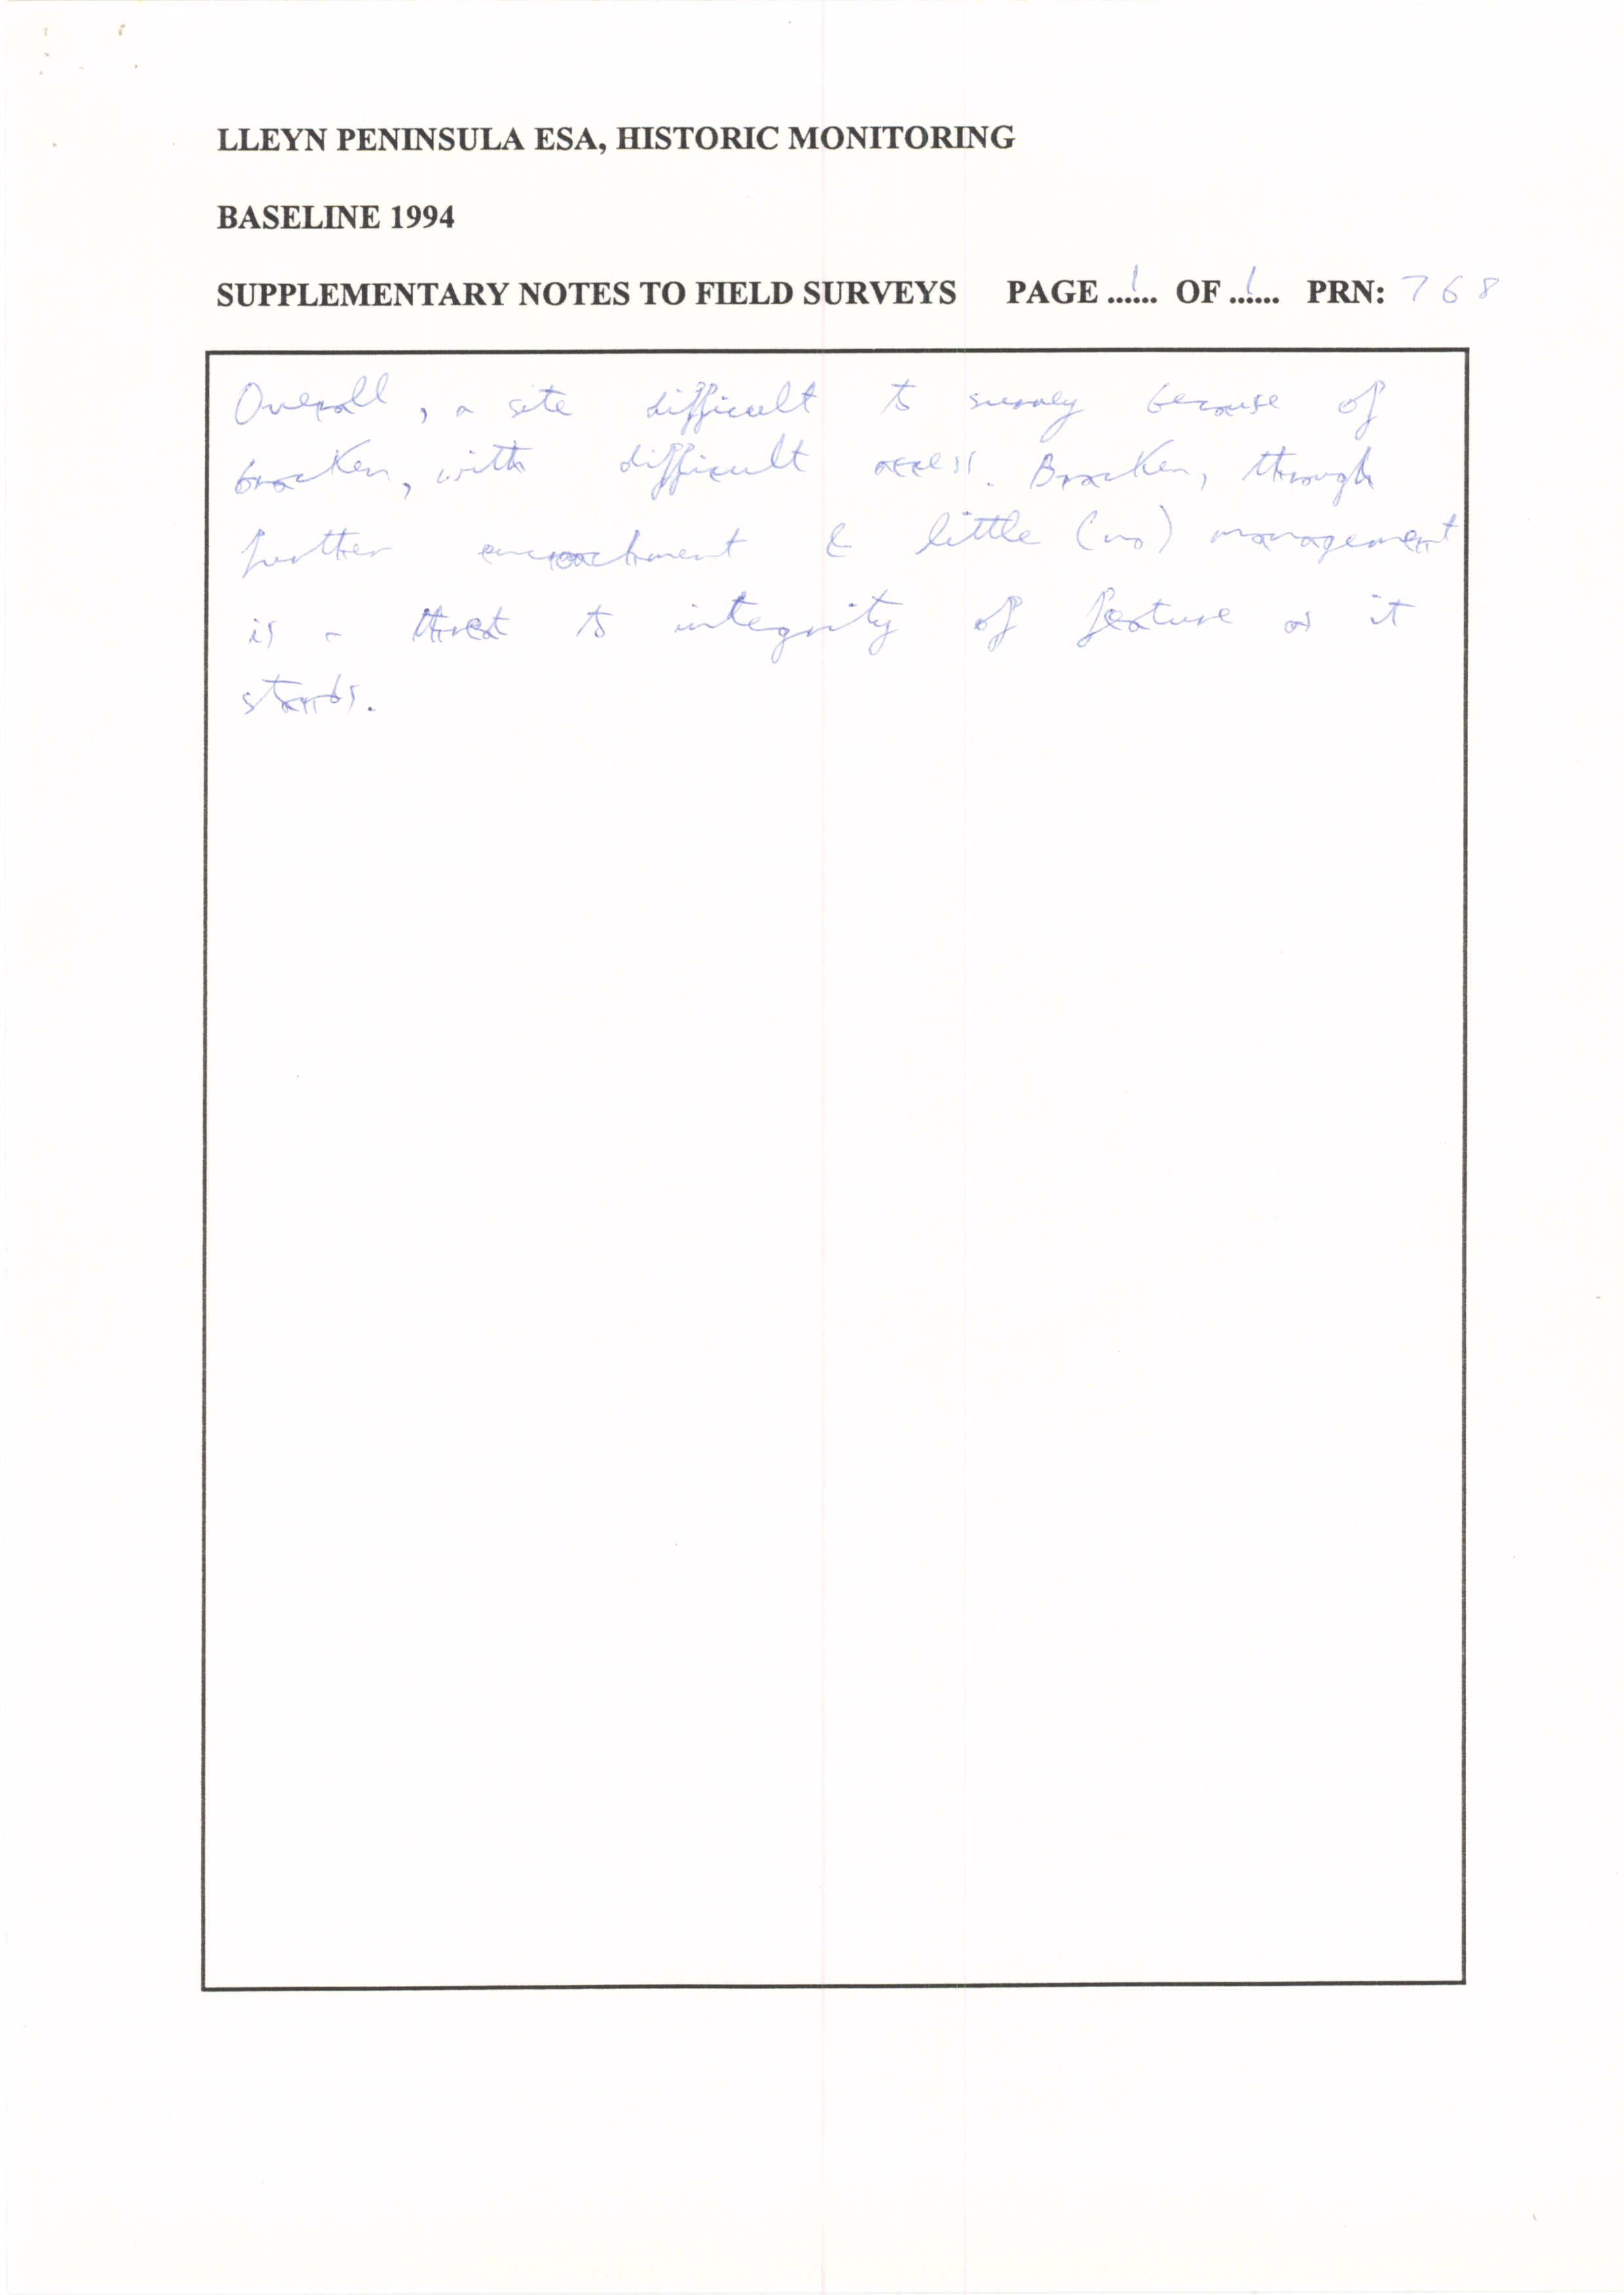 LLEYN PENINSULA ESA, HISTORIC MONITORING
BASELINE 1994
SUPPLEMENTARY NOTES TO FIELD SURVEYS PAGE ...1... OF ...1... PRN: 768
Overall, a site difficult to survey because of
bracken, with difficult access. Bracken, through
further encroachment & little (no) management
is a threat to integrity of feature as it
stands.